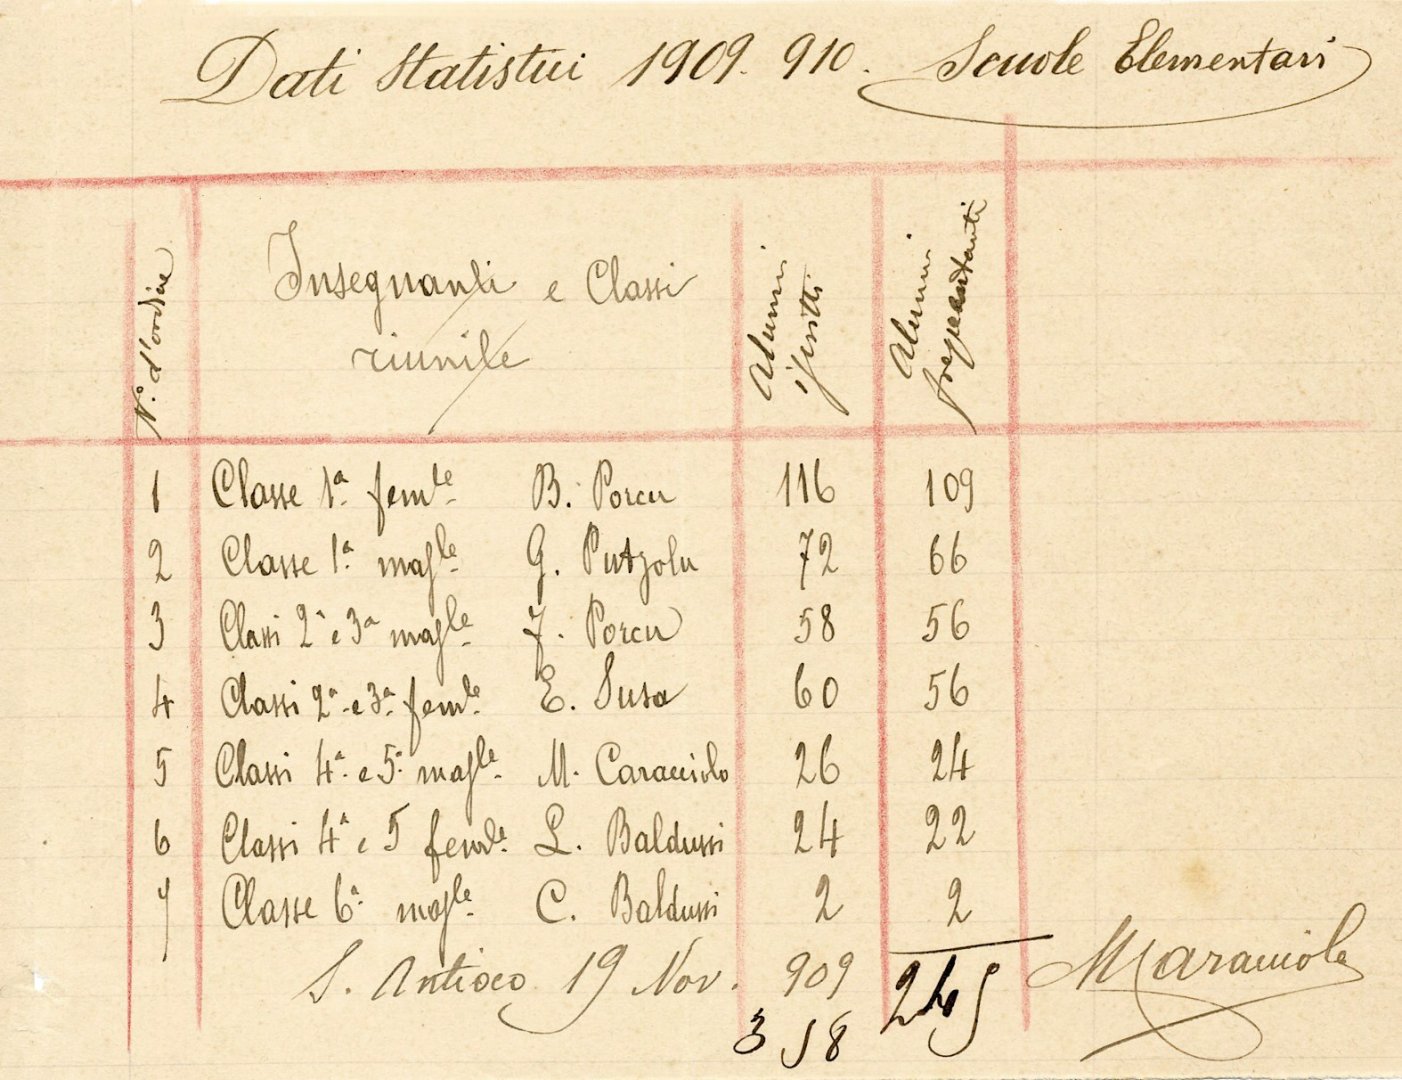 Dati Statistici 1909. 910. Scuole Elementari
N.° d'ordine
Insegnanti e Classi
riunite
Alunni
iscritti
Alunni
frequentanti
1 Classe 1ª. femle. B. Porcu 116 109
2 Classe 1ª. masle. G. Putzolu 72 66
3 Classi 2ª e 3ª masle. F. Porcu 58 56
4 Classi 2ª. e 3ª. femle. E. Susa 60 56
5 Classi 4ª. e 5ª. masle. M. Caracciolo 26 24
6 Classi 4ª e 5 femle. L. Baldussi 24 22
7 Classe 6ª. masle. C. Baldussi 2 2
S. Antioco 19 Nov. 909
358
MCaracciolo